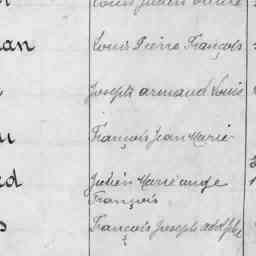 Louis Julien
an Louis Pierre François
Joseph armand Louis
François Jean Marie
Julien Marie ange
François
François Joseph adolphe